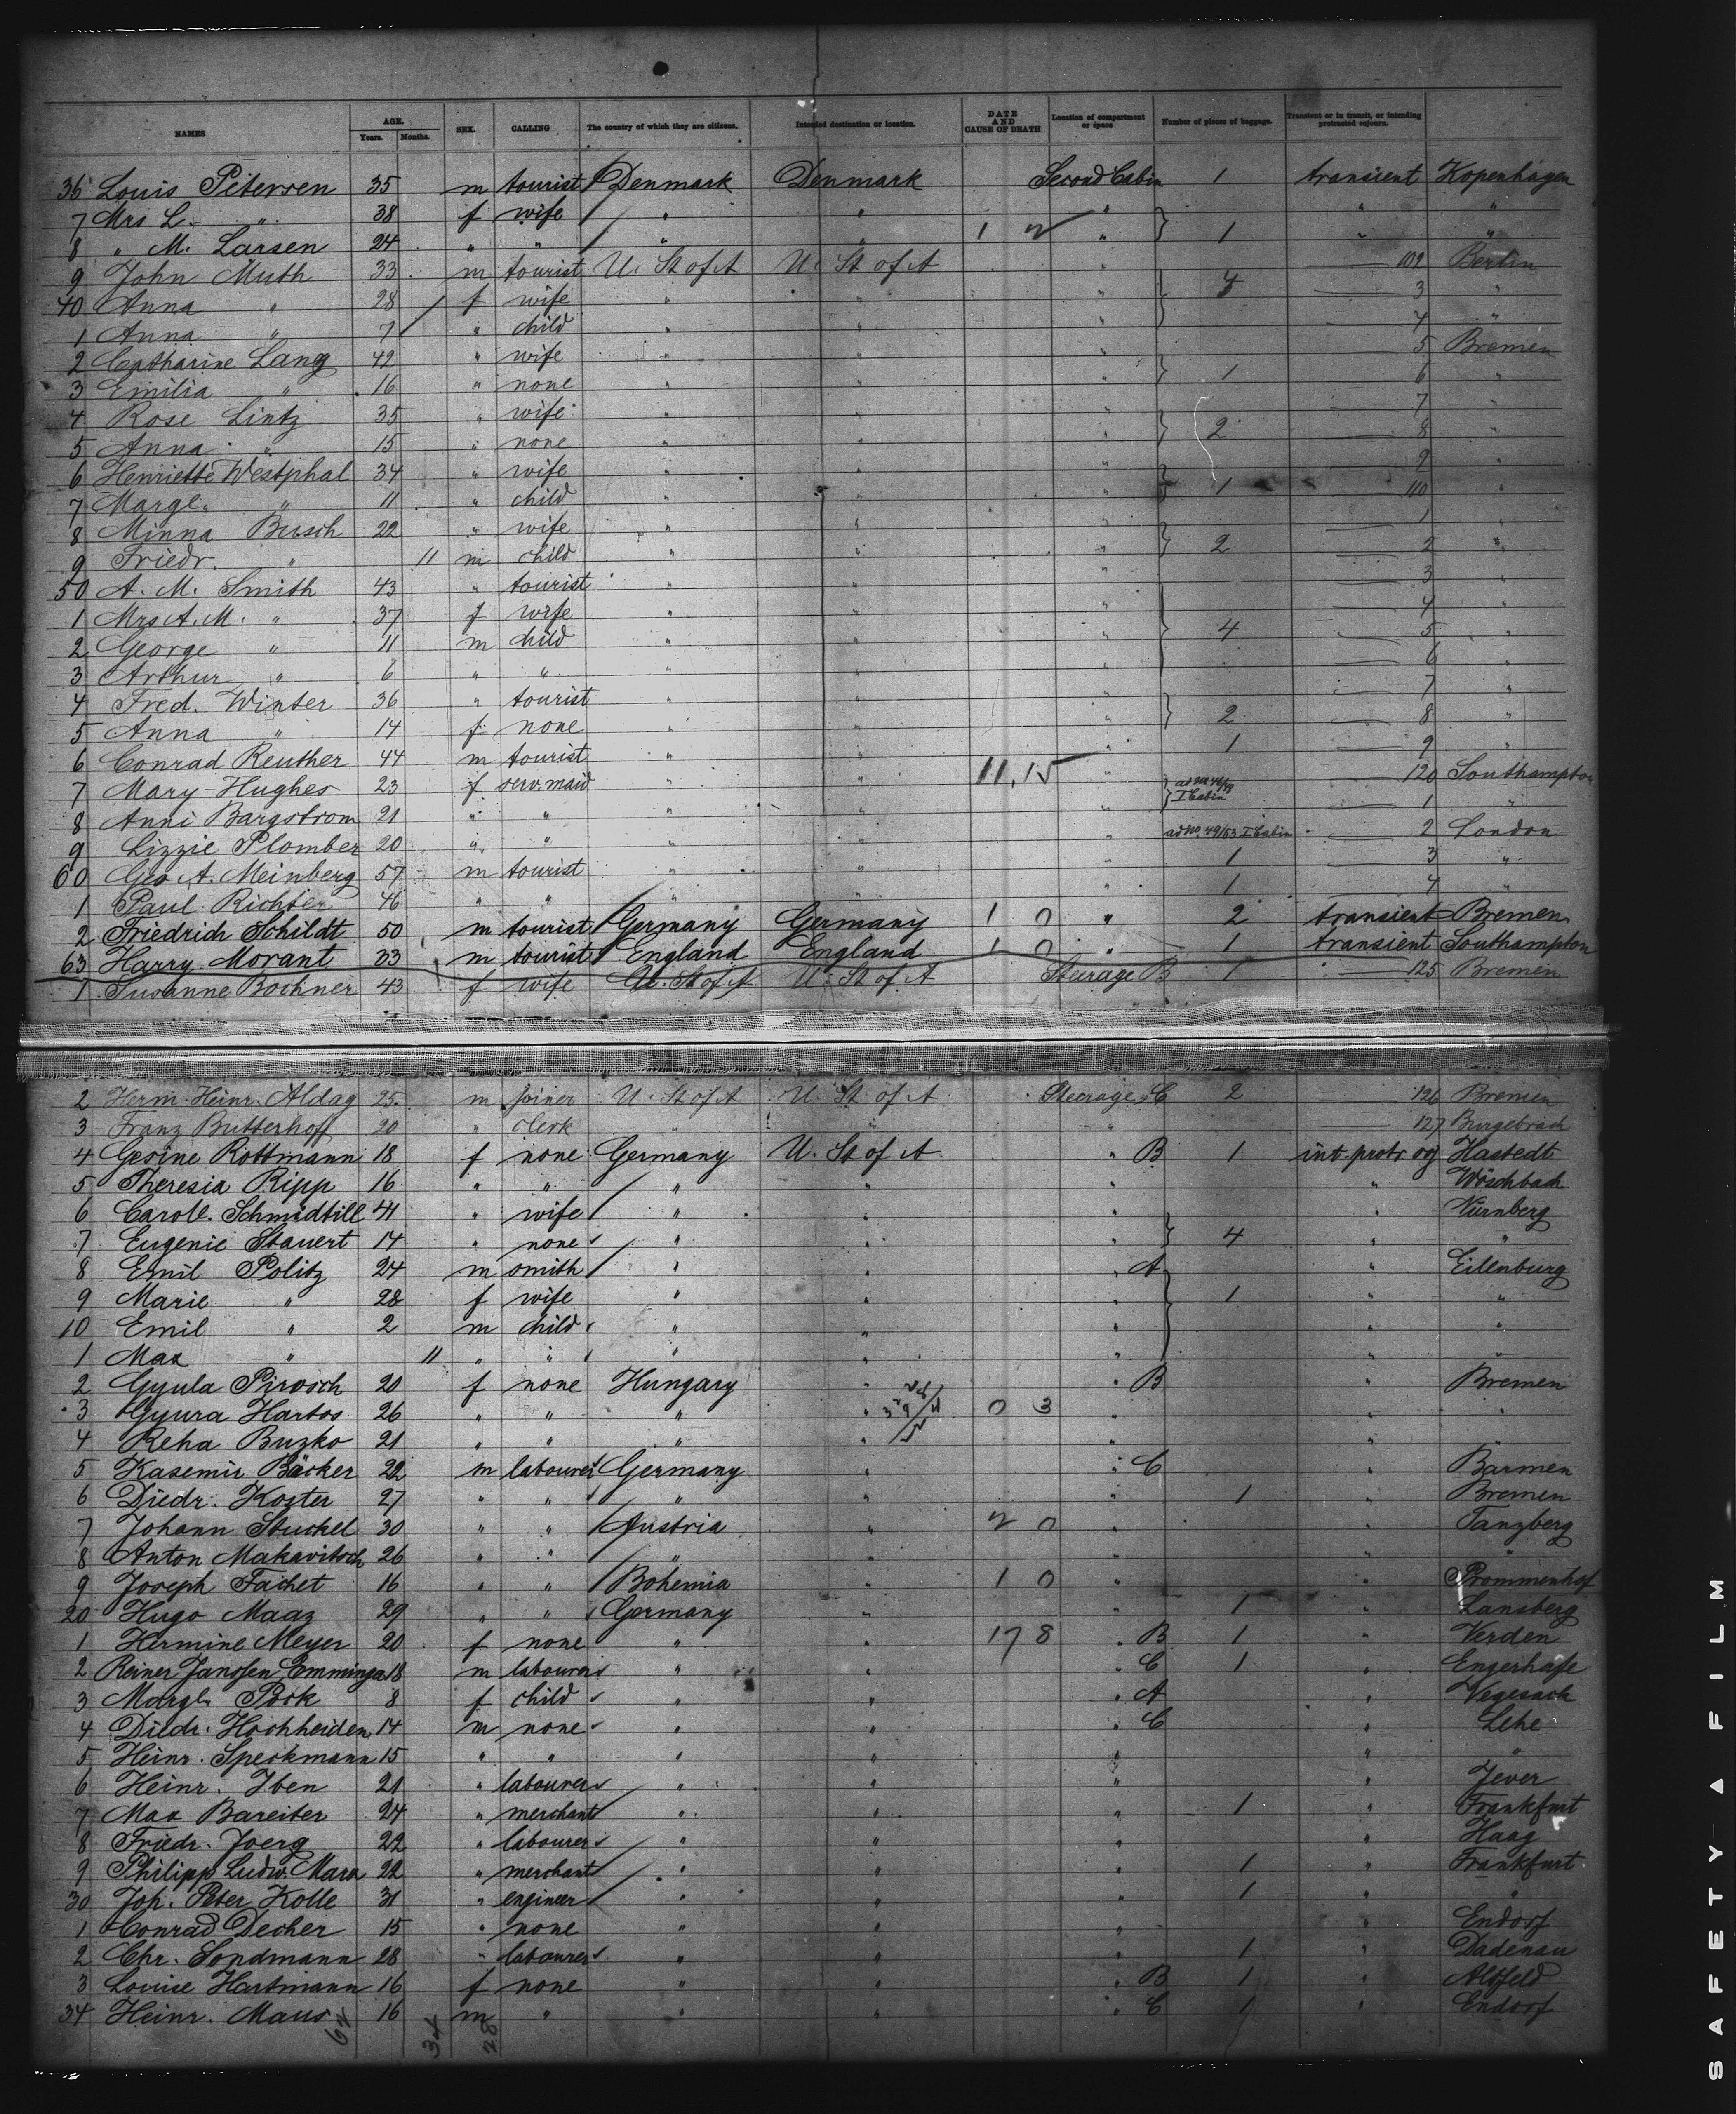 NAMES AGE. Years. Months. SEX. CALLING The country of which they are citizens. Intended destination or location. DATE AND CAUSE OF DEATH Location of compartment or space Number of pieces of baggage. Transient or in transit, or intending protracted sojourn.
36 Louis Petersen 35 m tourist Denmark Denmark Second Cabin 1 transient Kopenhagen
7 Mrs L. " 38 f wife " " " " "
8 " M. Larsen 24 " " " " " 1 " "
9 John Muth 33 m tourist U. St of A U. St of A " 109 Berlin
40 Anna " 28 f wife " " " 3 "
1 Anna " 7 " child " " " 4 "
2 Catharine Lang 42 " wife " " " 5 Bremen
3 Emilia " 16 " none " " " 1 6 "
4 Rose Lintz 35 " wife " " " 7 "
5 Anna " 15 " none " " " 2 8 "
6 Henriette Westphal 34 " wife " " " 9 "
7 Margt. " 11 " child " " " 1 110 "
8 Minna Busch 22 " wife " " " 1 "
9 Friedr. " 11 m child " " " 2 2 "
50 A. M. Smith 43 " tourist " " " 3 "
1 Mrs A. M. " 37 f wife " " " 4 "
2 George " 11 m child " " " 4 5 "
3 Arthur " 6 " " " " " 6 "
4 Fred. Winter 36 " tourist " " " 7 "
5 Anna " 14 f none " " " 2 8 "
6 Conrad Reuther 44 m tourist " " " 1 9 "
7 Mary Hughes 23 f serv. maid " " 11,15 " I Cabin 120 Southampton
8 Anni Bargstrom 21 " " " " " 1 "
9 Lizzie Plomber 20 " " " " " ad No. 49/53 I Cabin 2 London
60 Geo A. Meinberg 57 m tourist " " " 1 3 "
1 Paul Richter 46 " " " " " 1 4 "
2 Friedrich Schildt 50 m tourist Germany Germany 1 0 " 2 transient Bremen
63 Harry Morant 33 m tourist England England 1 0 " 1 transient Southampton
1 Susanne Bochner 43 f wife U. St of A U. St of A Steerage B 1 125 Bremen
2 Herm. Heinr. Aldag 25 m joiner U. St of A U. St of A Steerage C 2 126 Bremen
3 Franz Butterhoff 20 " clerk " " " 127 Burgebrach
4 Gesine Rottmann 18 f none Germany U. St of A " B 1 int. protr. soj Hastedt
5 Theresia Ripp 16 " " " " " " Wöschbach
6 Caroll. Schmidtill 41 " wife " " " " Nürnberg
7 Eugenie Stauert 14 " none " " " 4 " "
8 Emil Politz 24 m smith " " " A " Eilenburg
9 Marie " 28 f wife " " " 1 " "
10 Emil " 2 m child " " " " "
1 Max " 11 " " " " " " "
2 Gyula Pirosch 20 f none Hungary " " B " Bremen
3 Gyura Hartos 26 " " " " 0 3 " " "
4 Reha Buzko 21 " " " " " " "
5 Kasemir Bäcker 22 m labourer Germany " " C " Barmen
6 Diedr. Koster 27 " " " " " 1 " Bremen
7 Johann Stuckel 30 " " Austria " 2 0 " " Tanzberg
8 Anton Makavitsch 26 " " " " " " "
9 Joseph Fachet 16 " " Bohemia " 1 0 " " Prommenhof
20 Hugo Maaz 29 " " Germany " " 1 " Lansberg
1 Hermine Meyer 20 f none " " 17 8 " B 1 " Verden
2 Reiner Janssen Emminga 18 m labourer " " " C 1 " Engerhafe
3 Margt. Pock 8 f child " " " A " Vegesack
4 Diedr. Hochheiden 14 m none " " " C " Lehe
5 Heinr. Speckmann 15 " " " " " " "
6 Heinr. Iben 21 " labourer " " " " Jever
7 Max Bareiter 24 " merchant " " " 1 " Frankfurt
8 Friedr. Joerg 22 " labourer " " " " Haag
9 Philipp Ludw. Marx 22 " merchant " " " 1 " Frankfurt
30 Joh. Peter Kolle 31 " engineer " " " 1 " "
1 Conrad Decher 15 " none " " " " Endorf
2 Chr. Sondmann 28 " labourer " " " 1 " Dadenau
3 Louise Hartmann 16 f none " " " B 1 " Altfeld
34 Heinr. Maus 16 m " " " " C 1 " Endorf
64 34 28
SAFETY FILM